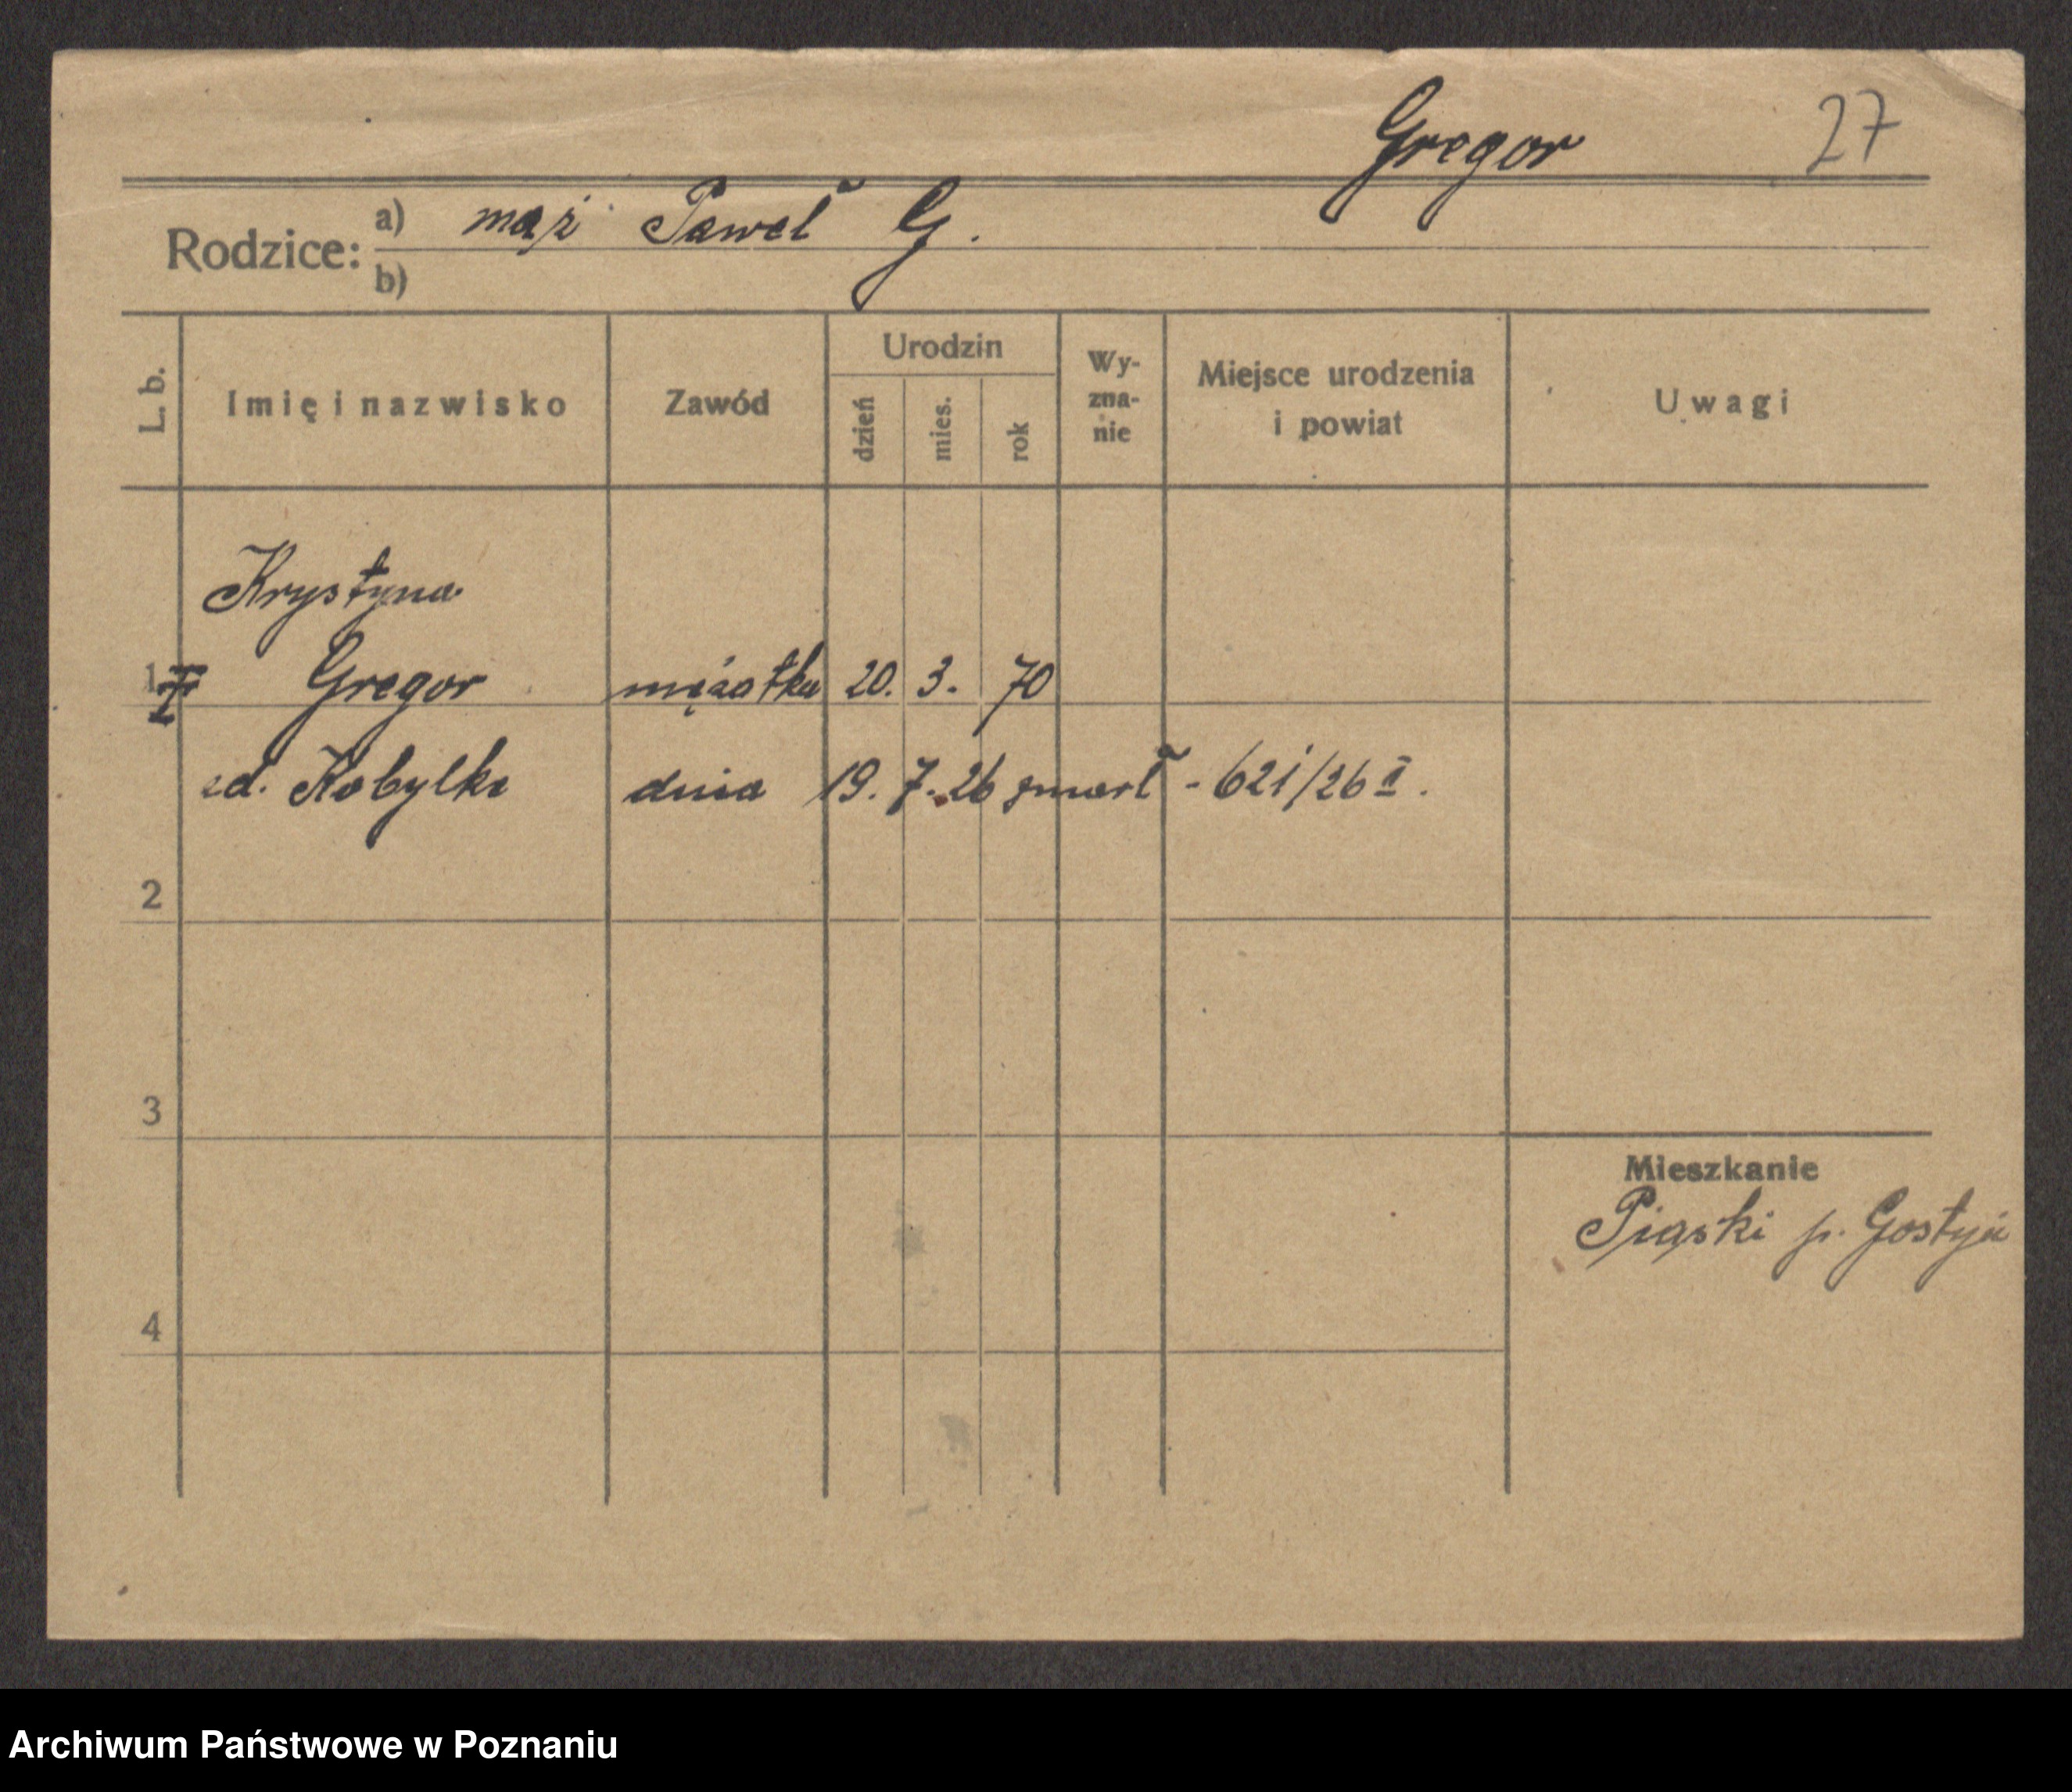 Gregor 27
Rodzice: a) mąż Paweł G.
b)
L. b. Imię i nazwisko Zawód Urodzin dzień mies. rok Wy-zna-nie Miejsce urodzenia i powiat Uwagi
Krystyna
1 Gregor mężatka 20. 3. 70
zd. Kobylka dnia 19. 7. 26 zmarł - 621/26 II.
2
3
Mieszkanie
Piaski p. Gostyń
4
Archiwum Państwowe w Poznaniu